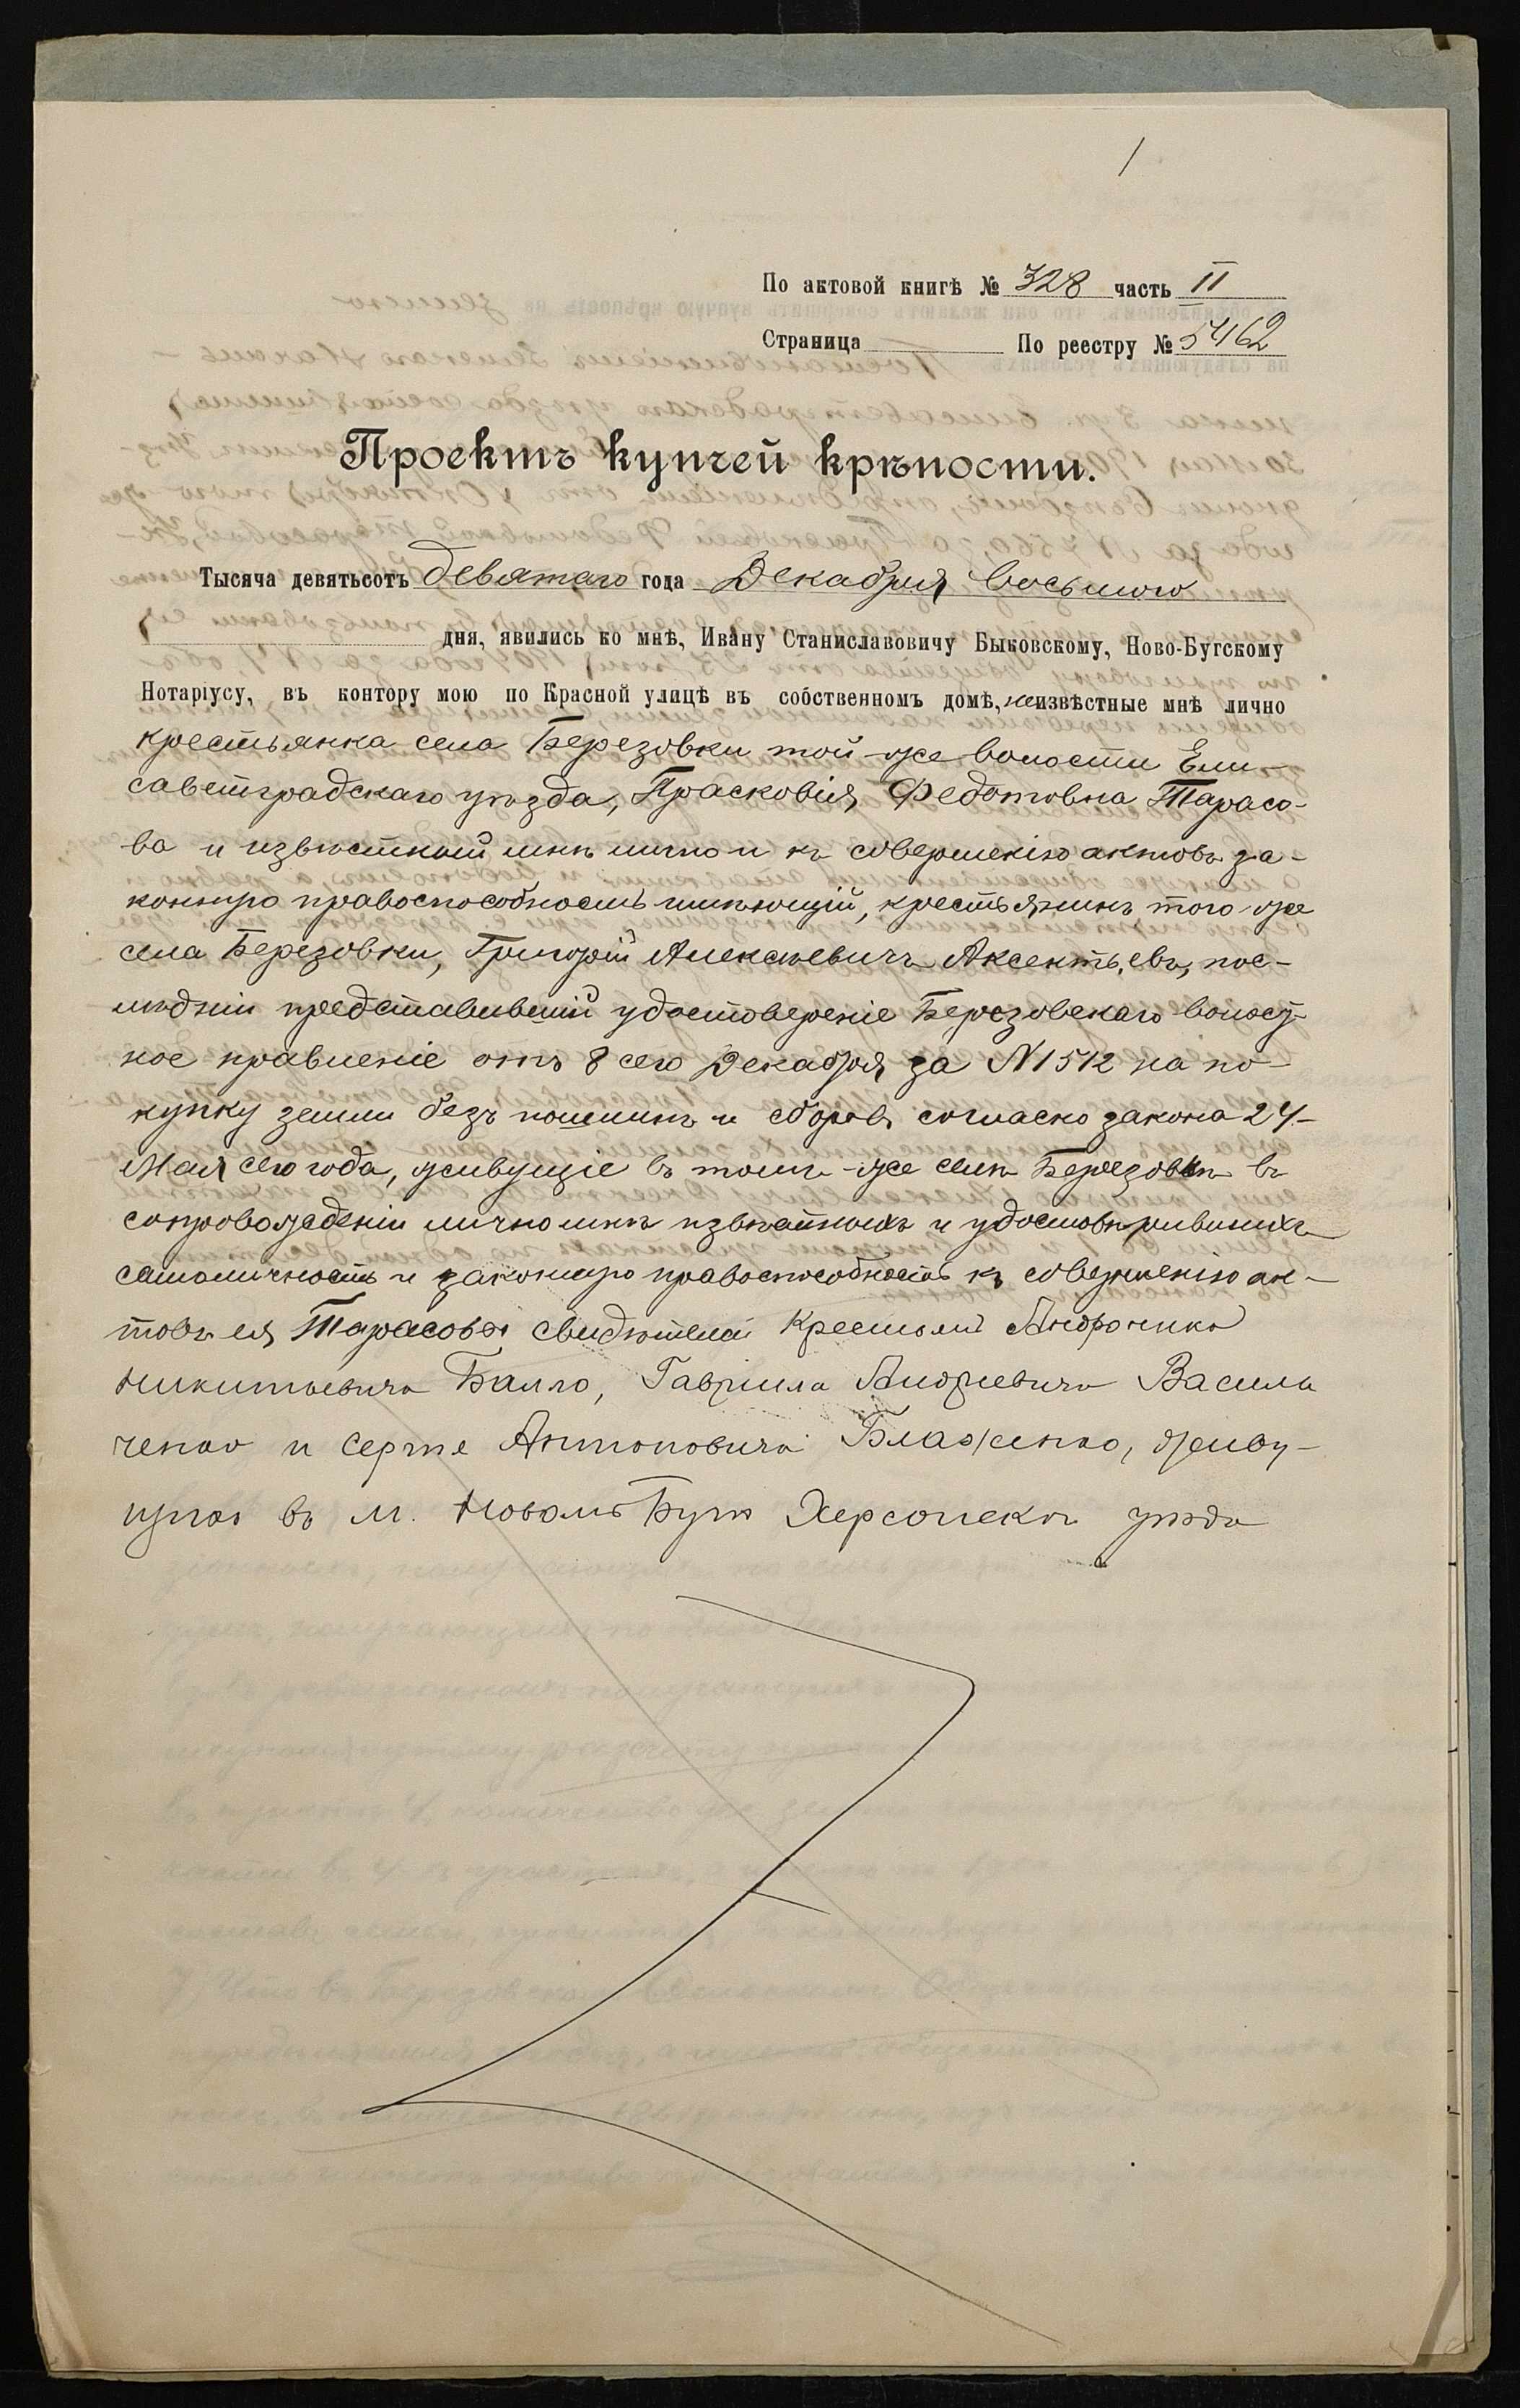 1
По актовой книгѣ № 328 часть II
Страница По реестру № 5462
Проектъ купчей крѣпости.
Тысяча девятьсотъ девятаго года Декабря восьмого
дня, явились ко мнѣ, Ивану Станиславовичу Быковскому, Ново-Бугскому
Нотаріусу, въ контору мою по Красной улицѣ въ собственномъ домѣ, неизвѣстные мнѣ лично
крестьянка села Березовки той-же волости Ели-
саветградскаго уѣзда, Прасковія Федотовна Тарасо-
ва и извѣстный мнѣ лично и къ совершенію актовъ за-
конную правоспособность имѣющій, крестьянинъ того-же
села Березовки, Григорій Алексѣевичъ Аксентьевъ, пос-
лѣдній представившій удостовереніе Березовскаго волост-
ное правленіе отъ 8 сего Декабря за №1512 на по-
купку земли безъ пошлинъ и сборовъ согласно закона 24-
Мая сего года, живущіе въ томъ-же селѣ Березовкѣ въ
сопровожденіи лично мнѣ извѣстныхъ и удостовѣрившихъ
самоличность и законную правоспособность къ совершенію ак-
товъ ея Тарасовой свидѣтелей Крестьянъ Андроника
Никитовича Балло, Гавріила Андреевича Василь
ченко и Сергѣя Антоновича Блаженко, живу-
щихъ въ м. Новомъ Бугѣ Херсонскъ уѣзда